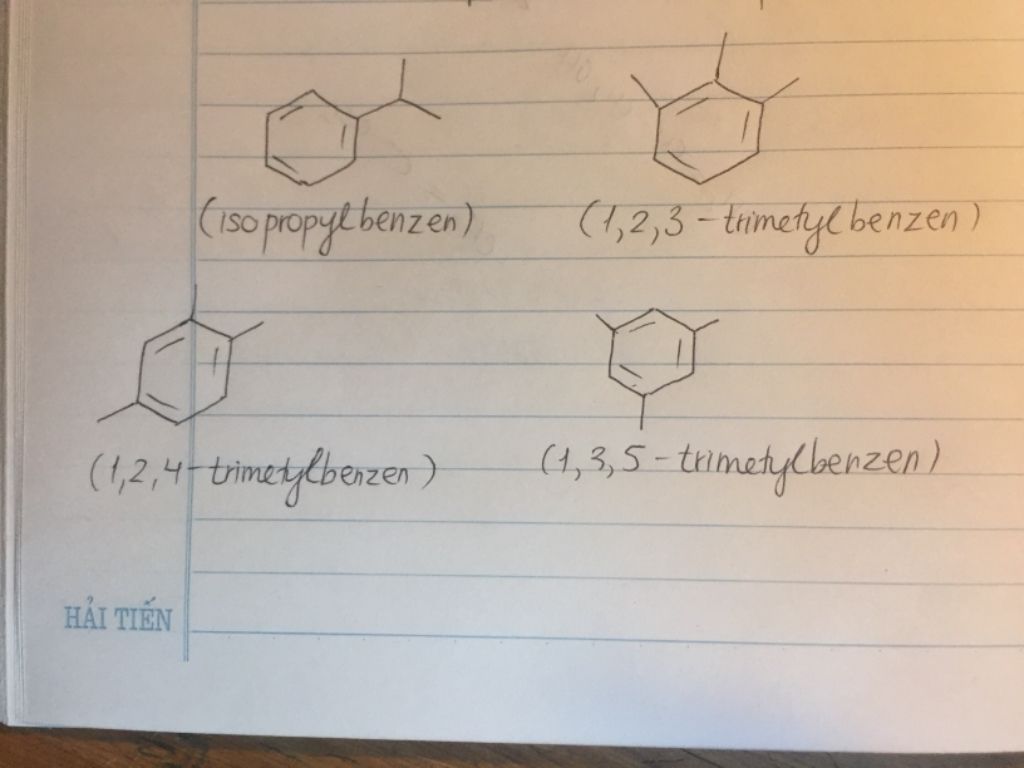 (isopropylbenzen)
(1,2,3-trimetylbenzen)
(1,2,4-trimetylbenzen)
(1,3,5-trimetylbenzen)
HẢI TIẾN